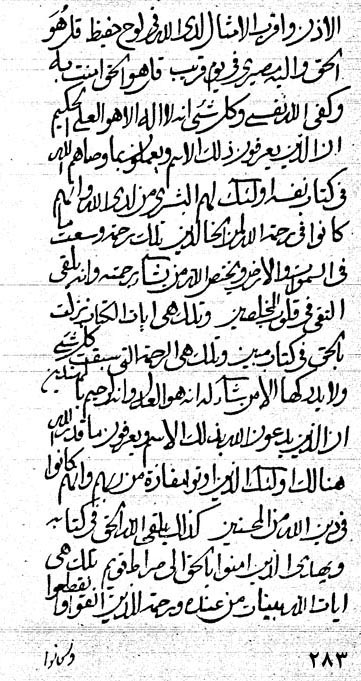 الاذن واقرب الامثال لدى الله فى لوح حفيظ قل هو
الحق واليه مصيرى فى يوم قريب قل هو الحق امنت به
وكفى الله نفسى وكل شئ انه لا اله الا هو العلى الحكيم
ان الذين يعرفون ذلك الاسم ويعملون بما وصاهم الله
فى كتاب نفسه اولئك لهم البشرى من لدى الله وانهم
كانوا فى رحمة الله لمن الخالدين تلك رحمة وسعت ما
فى السموات والارض ويختص الله من يشاء برحمته وانه يلقى
فى قلوب المخلصين وتلك هى ايات الكتاب نزلت
بالحق فى كتاب مبين وتلك هى الرحمة التى سبقت كل شئ
ولا يدركها الا من شاء له انه هو العلى وانه رحيم بالمحسنين
ان الذين يدعون الله بذلك الاسم ويعرفون ما قدر الله
هنالك اولئك الذين اوتوا مفازة من ربهم وانهم كانوا
فى دين الله من المحسنين كذلك يلقى الله الحق فى كتابه
ويهدى الذين امنوا بالحق الى صراط قويم تلك هى
ايات الله بينات من عنده ورحمة للذين اتقوا
وكانوا
٢٨٣